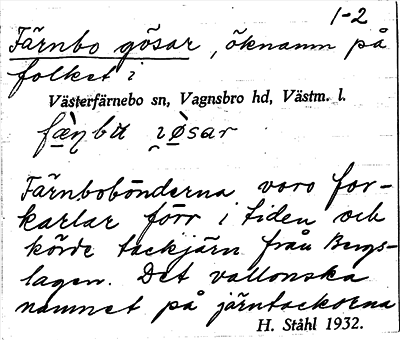 1-2
Färnbo gösar, öknamn på
folket i
Västerfärnebo sn, Vagnsbro hd, Västm. l.
Färnbobönderna voro for-
karlar förr i tiden och
körde tackjärn från Bergs-
lagen. Det vallonska
namnet på järntackorna
H. Ståhl 1932.